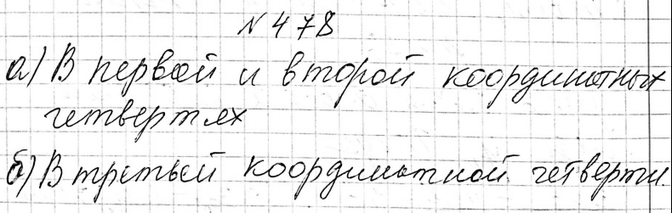 № 478
а) В первой и второй координатных
четвертях
б) В третьей координатной четверти